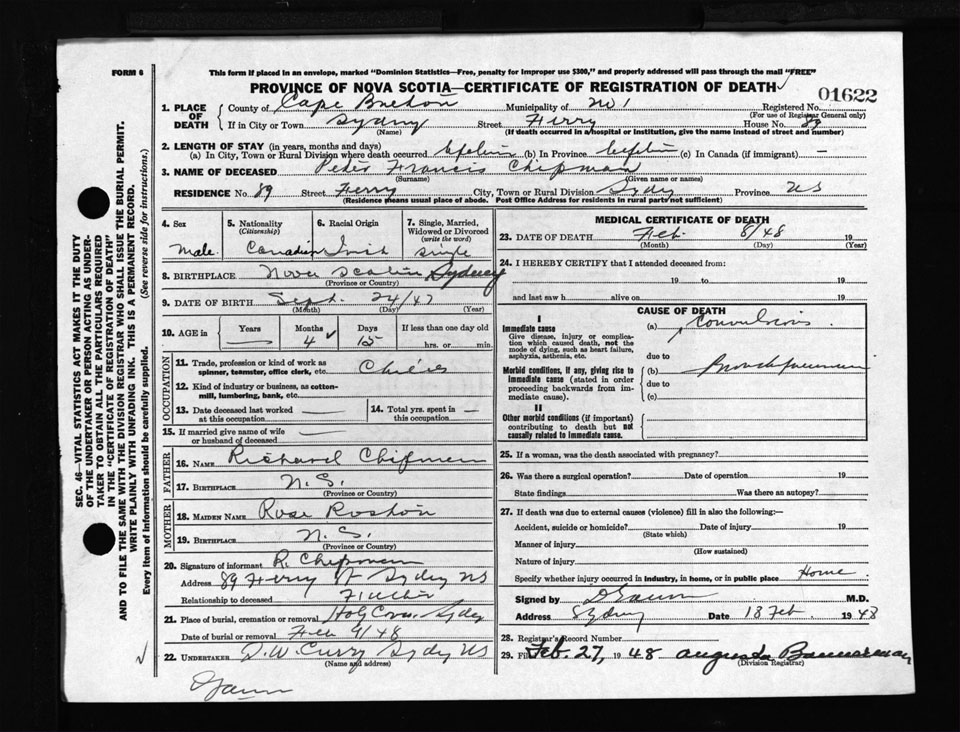 FORM 6
This form if placed in an envelope, marked "Dominion Statistics—Free, penalty for improper use $300," and properly addressed will pass through the mail "FREE"
PROVINCE OF NOVA SCOTIA—CERTIFICATE OF REGISTRATION OF DEATH
01622
1. PLACE OF DEATH
County of Cape Breton Municipality of No 1 Registered No.
(For use of Registrar General only)
If in City or Town Sydney Street Ferry House No. 89
(Name) (If death occurred in a hospital or institution, give the name instead of street and number)
2. LENGTH OF STAY (in years, months and days)
(a) In City, Town or Rural Division where death occurred (b) In Province (c) In Canada (if immigrant) —
3. NAME OF DECEASED Peter Francis Chipman
(Surname) (Given name or names)
RESIDENCE No. 89 Street Ferry City, Town or Rural Division Sydney Province NS
(Residence means usual place of abode. Post Office Address for residents in rural parts not sufficient)
4. Sex
Male.
5. Nationality
(Citizenship)
Canadian
6. Racial Origin
7. Single, Married, Widowed or Divorced
(write the word)
Single
8. BIRTHPLACE Nova Scotia Sydney
(Province or Country)
9. DATE OF BIRTH Sept. 24/47
(Month) (Day) (Year)
10. AGE in
Years —
Months 4
Days 15
If less than one day old
hrs. or min.
OCCUPATION
11. Trade, profession or kind of work as spinner, teamster, office clerk, etc.
12. Kind of industry or business, as cotton-mill, lumbering, bank, etc.
13. Date deceased last worked at this occupation. —
14. Total yrs. spent in this occupation. —
15. If married give name of wife or husband of deceased —
FATHER
16. NAME Richard Chipman
17. BIRTHPLACE N.S.
(Province or Country)
MOTHER
18. MAIDEN NAME Rose
19. BIRTHPLACE N.S.
(Province or Country)
20. Signature of informant R. Chipman
Address 89 Ferry St Sydney NS
Relationship to deceased Father
21. Place of burial, cremation or removal Holy Cross Sydney
Date of burial or removal Feb 9/48
22. UNDERTAKER D.W. Curry Sydney NS
(Name and address)
MEDICAL CERTIFICATE OF DEATH
23. DATE OF DEATH Feb. 8/48 19
(Month) (Day) (Year)
24. I HEREBY CERTIFY that I attended deceased from:
19 to 19
and last saw h alive on 19
CAUSE OF DEATH
I
Immediate cause
Give disease, injury or complication which caused death, not the mode of dying, such as heart failure, asphyxia, asthenia, etc.
(a) Convulsions.
due to
Morbid conditions, if any, giving rise to immediate cause (stated in order proceeding backwards from immediate cause).
(b)
due to
(c)
II
Other morbid conditions (if important) contributing to death but not causally related to immediate cause.
25. If a woman, was the death associated with pregnancy?
26. Was there a surgical operation? Date of operation 19
State findings Was there an autopsy?
27. If death was due to external causes (violence) fill in also the following:—
Accident, suicide or homicide? Date of injury 19
(State which)
Manner of injury
(How sustained)
Nature of injury
Specify whether injury occurred in industry, in home, or in public place Home
Signed by M.D.
Address Sydney Date 13 Feb 1948
28. Registrar's Record Number
29. Filed Feb. 27, 1948 Augusta Bannerman
(Division Registrar)
SEC. 46—VITAL STATISTICS ACT MAKES IT THE DUTY OF THE UNDERTAKER OR PERSON ACTING AS UNDERTAKER TO OBTAIN ALL THE PARTICULARS REQUIRED IN THE "CERTIFICATE OF REGISTRATION OF DEATH" AND TO FILE THE SAME WITH THE DIVISION REGISTRAR WHO SHALL ISSUE THE BURIAL PERMIT.
WRITE PLAINLY WITH UNFADING INK. THIS IS A PERMANENT RECORD.
Every item of Information should be carefully supplied. (See reverse side for instructions.)